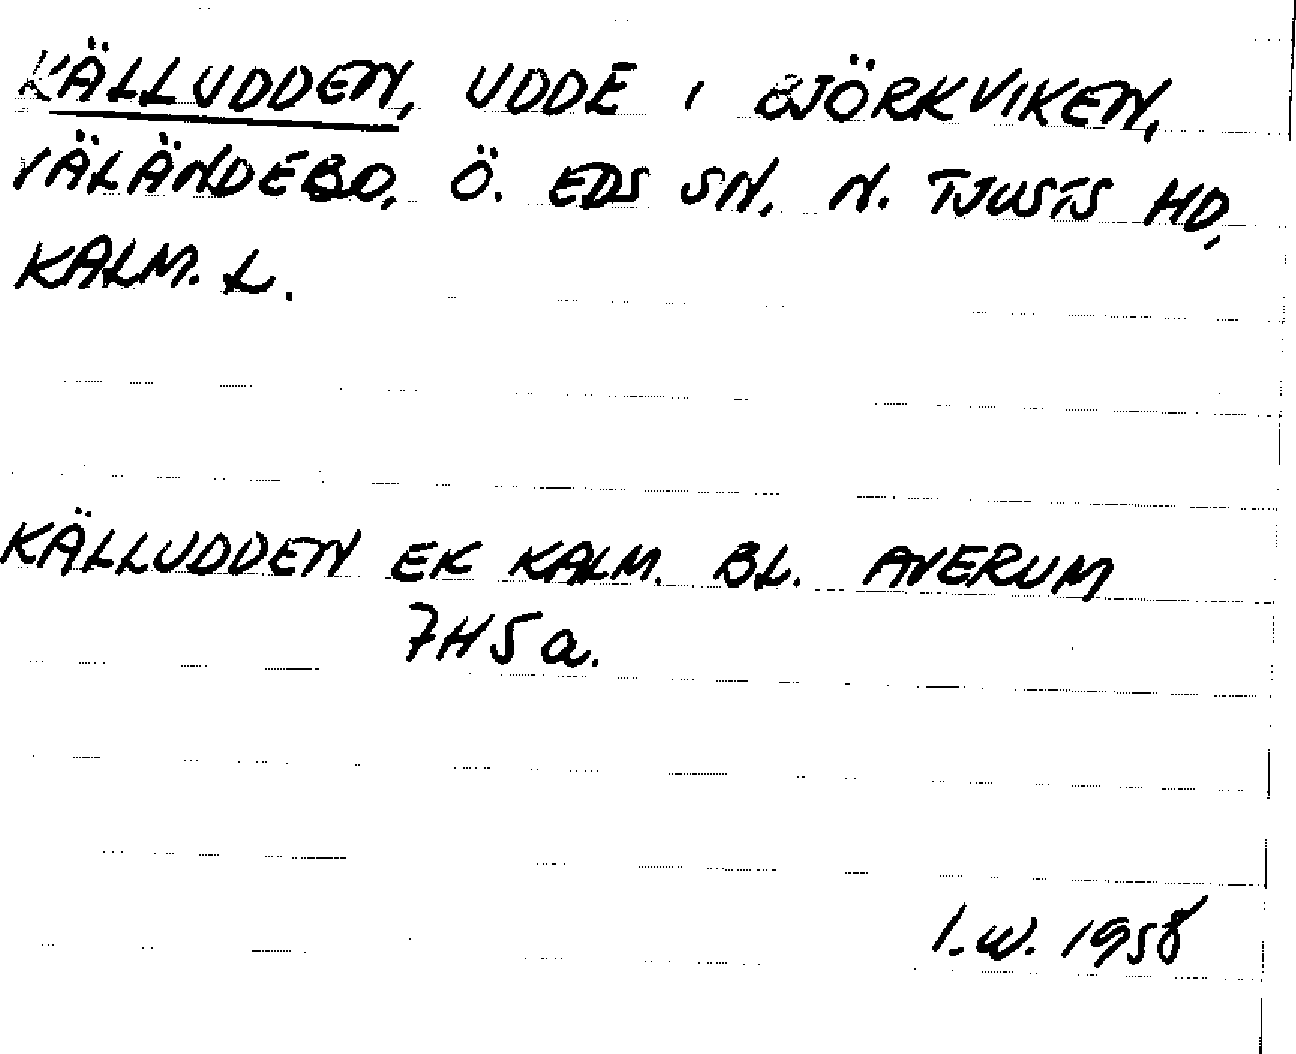 KÄLLUDDEN, UDDE I BJÖRKVIKEN,
VÄLÄNDEBO, Ö. EDS SN, N. TJUSTS HD,
KALM. L.
KÄLLUDDEN EK KALM. BL. AVERUM
7H5a.
I.W. 1958